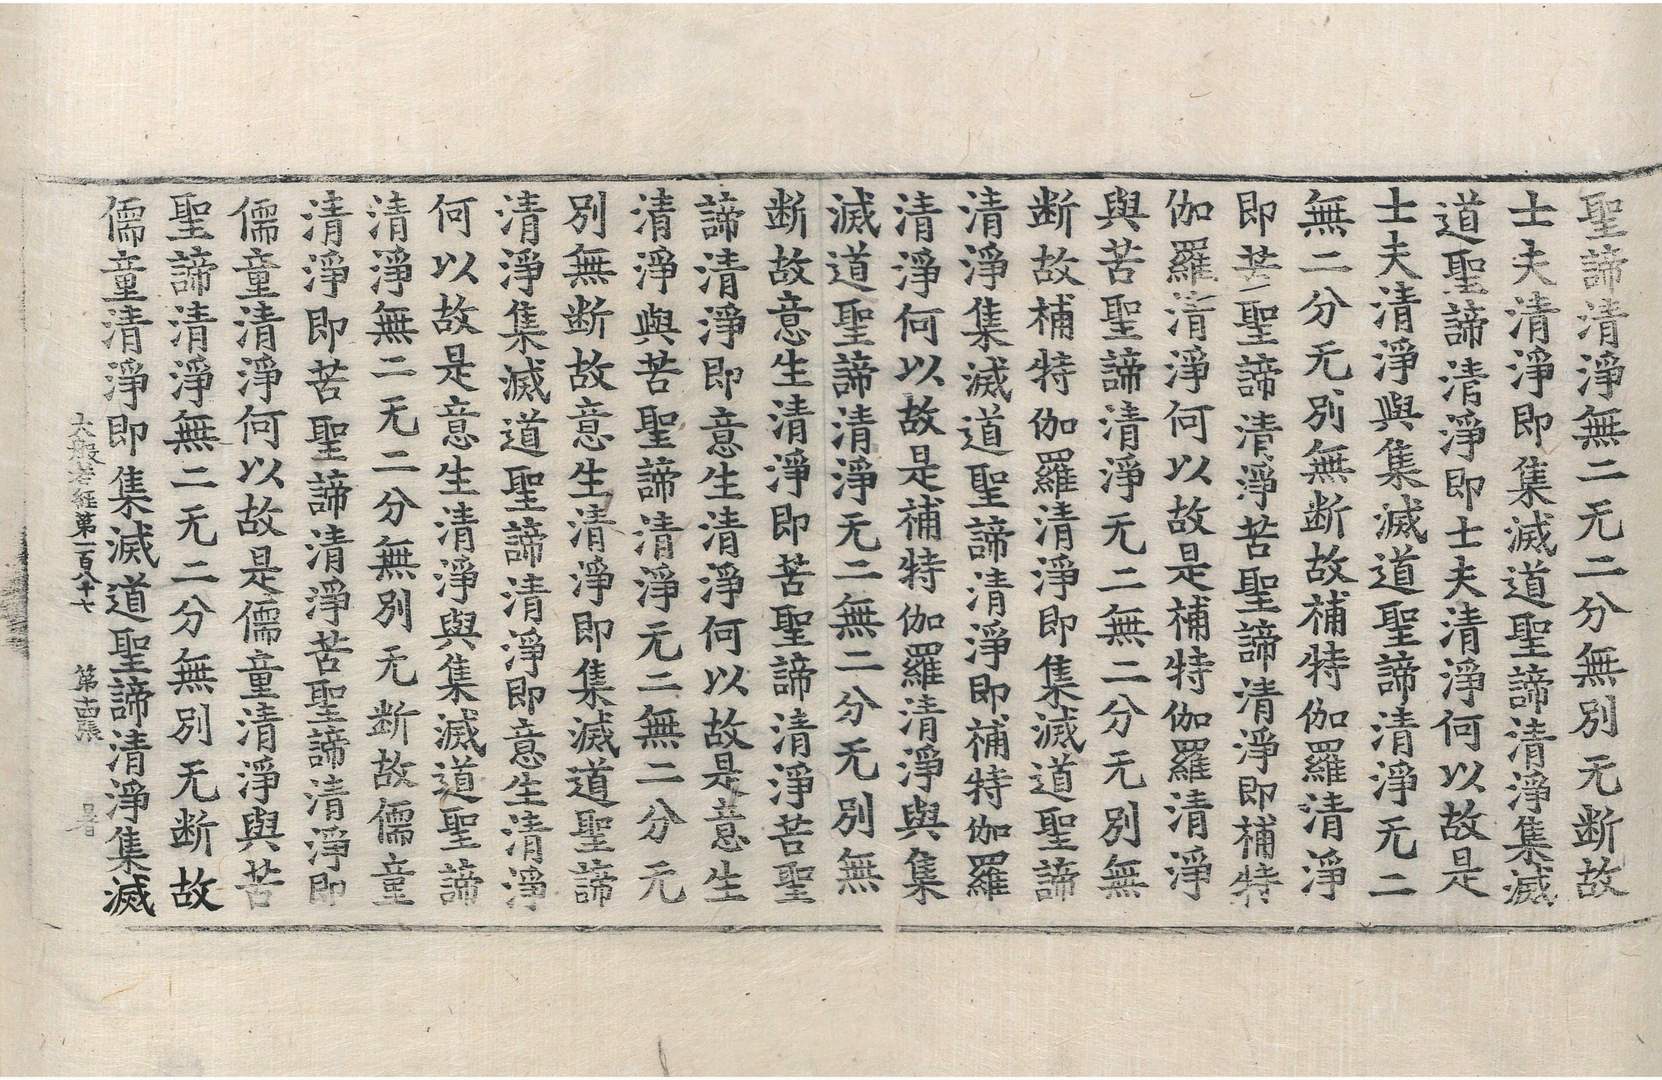 聖諦清淨無二无二分無別无断故
士夫清淨即集滅道聖諦清淨集滅
道聖諦清淨即士夫清淨何以故是
士夫清淨與集滅道聖諦清淨无二
無二分无別無断故補特伽羅清淨
即苦聖諦清淨苦聖諦清淨即補特
伽羅清淨何以故是補特伽羅清淨
與苦聖諦清淨无二無二分无別無
断故補特伽羅清淨即集滅道聖諦
清淨集滅道聖諦清淨即補特伽羅
清淨何以故是補特伽羅清淨與集
滅道聖諦清淨无二無二分无別無
断故意生清淨即苦聖諦清淨苦聖
諦清淨即意生清淨何以故是意生
清淨與苦聖諦清淨无二無二分无
別無断故意生清淨即集滅道聖諦
清淨集滅道聖諦清淨即意生清淨
何以故是意生清淨與集滅道聖諦
清淨無二无二分無別无断故儒童
清淨即苦聖諦清淨苦聖諦清淨即
儒童清淨何以故是儒童清淨與苦
聖諦清淨無二无二分無別无断故
儒童清淨即集滅道聖諦清淨集滅
大般若経第一百八十七 第十四張